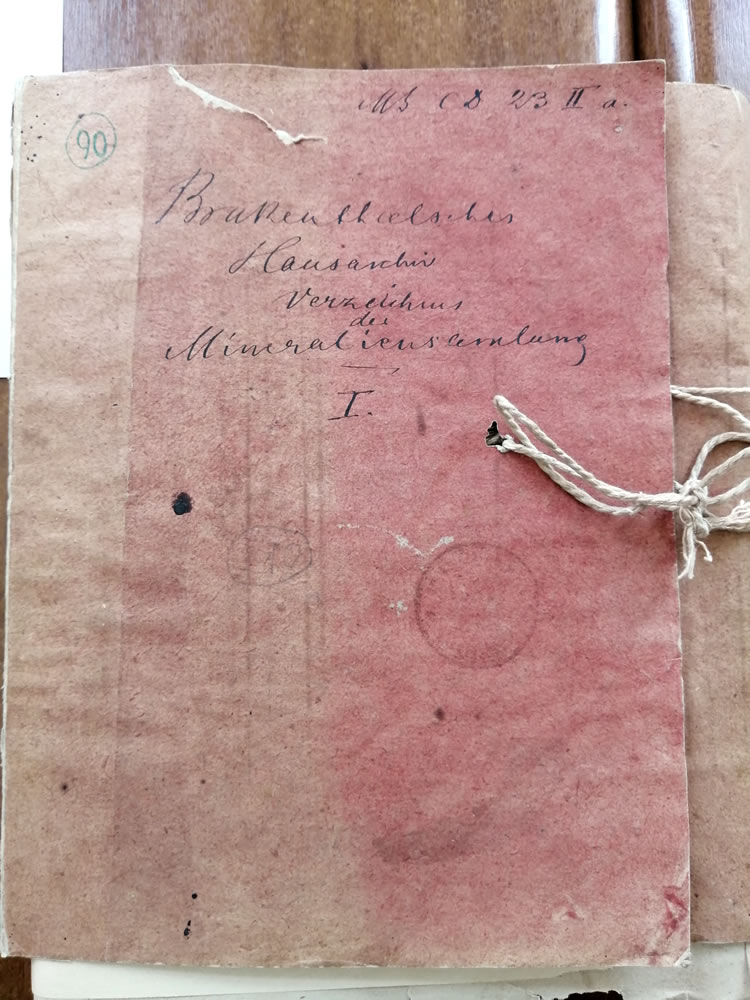 MS CD 23 II a.
90
Brukenthalsches
Hausarchiv
Verzeichnis
der
Mineraliensamlung
I.